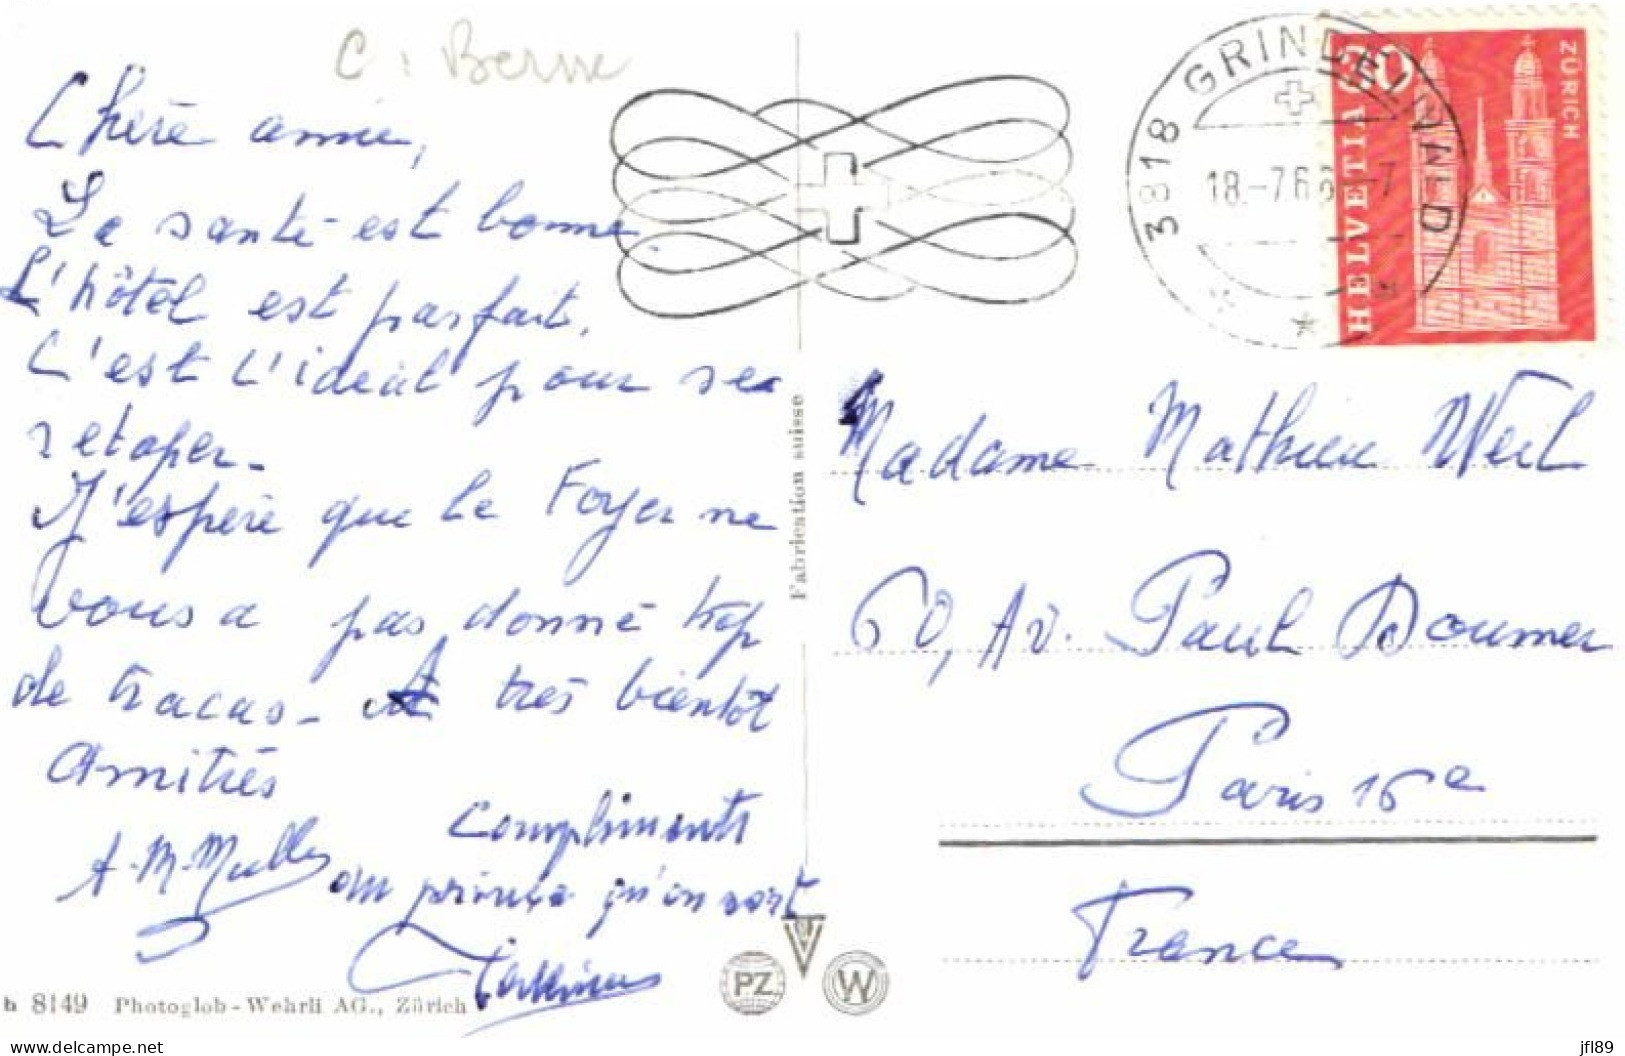 C: Berne
Chère amie,
La santé est bonne.
L'hôtel est parfait.
C'est l'idéal pour se
retaper.
J'espère que le Foyer ne
vous a pas donné trop
de tracas. A très bientôt
Amitiés
A. M. Muller
Compliments
qu'on sort
h 8149 Photoglob-Wehrli AG., Zürich
Fabrication suisse
PZ
W
3818 GRINDELWALD
18.-7.6 -7
HELVETIA
20
ZÜRICH
Madame Mathieu Weil
60, Av. Paul Doumer
Paris 16e
France
www.delcampe.net
jfl89